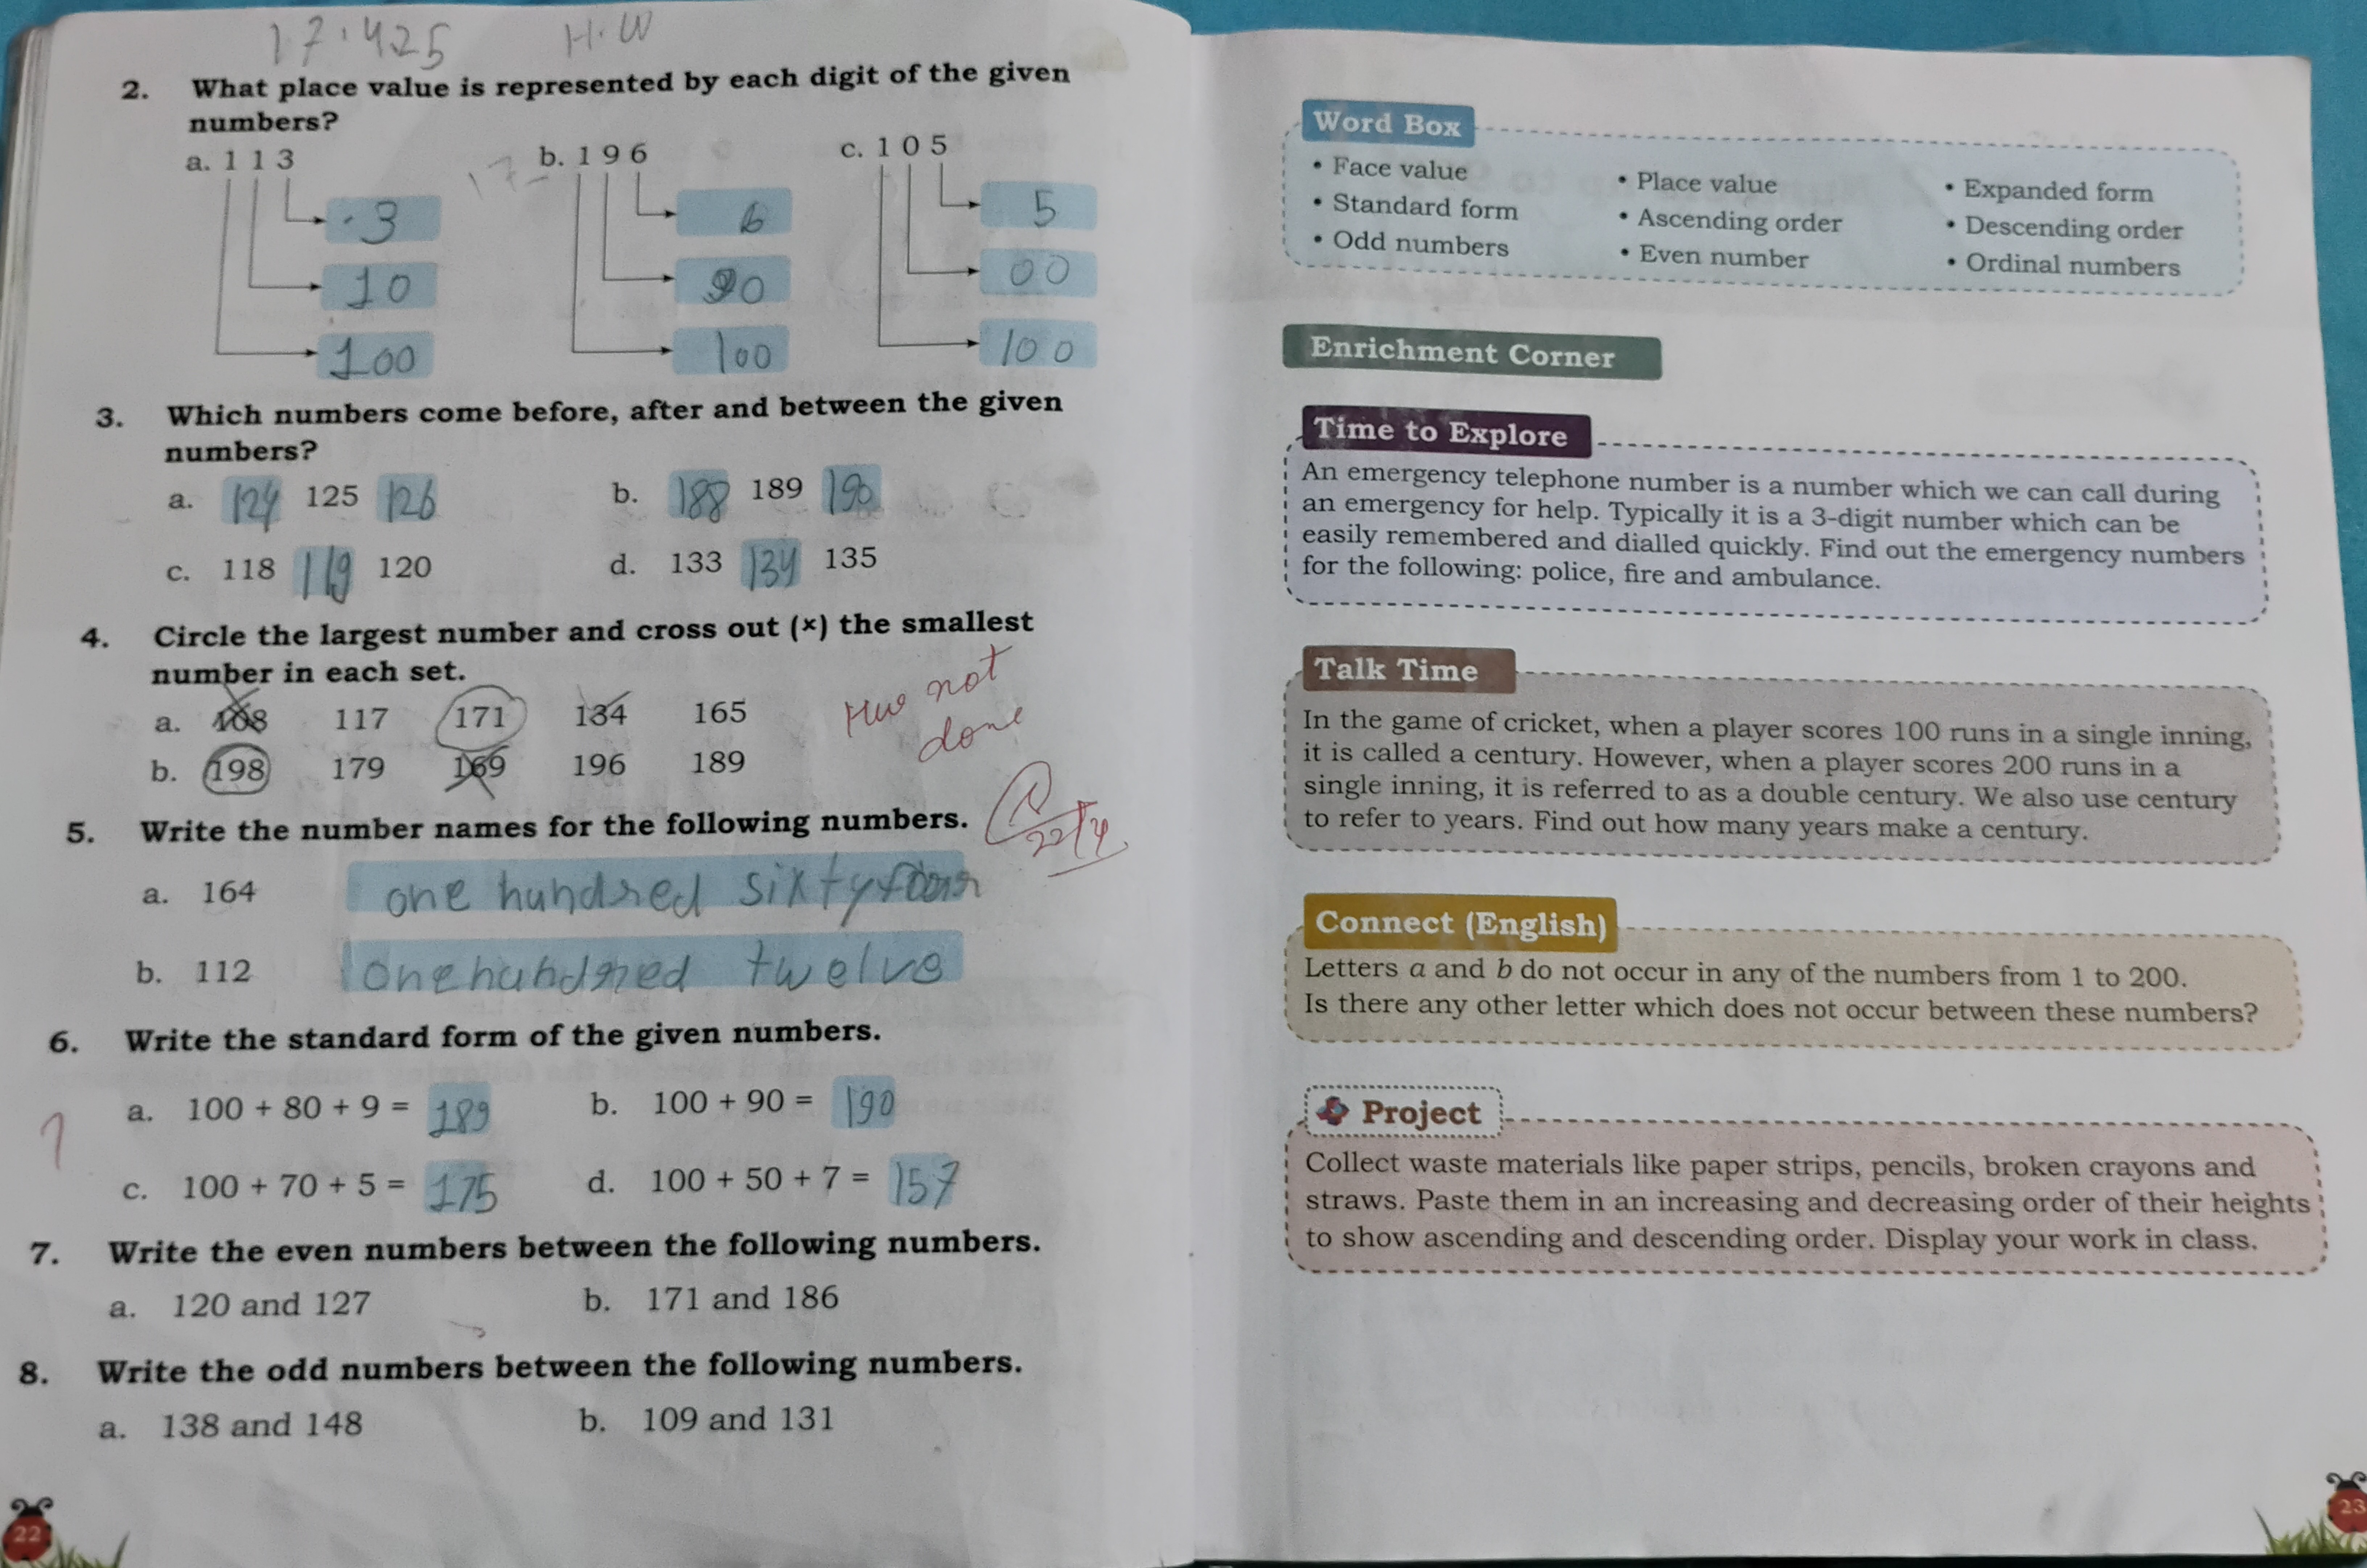 17.4.25 H.W
2. What place value is represented by each digit of the given
numbers?
a. 1 1 3 b. 1 9 6 c. 1 0 5
3 6 5
10 90 00
100 100 100
3. Which numbers come before, after and between the given
numbers?
a. 124 125 126 b. 188 189 190
c. 118 119 120 d. 133 134 135
4. Circle the largest number and cross out (×) the smallest
number in each set.
a. 108 117 171 134 165
b. 198 179 169 196 189
HW not
done
22/4
5. Write the number names for the following numbers.
a. 164 one hundred sixtyfour
b. 112 onehundred twelve
6. Write the standard form of the given numbers.
a. 100 + 80 + 9 = 189 b. 100 + 90 = 190
c. 100 + 70 + 5 = 175 d. 100 + 50 + 7 = 157
7. Write the even numbers between the following numbers.
a. 120 and 127 b. 171 and 186
8. Write the odd numbers between the following numbers.
a. 138 and 148 b. 109 and 131
22
Word Box
• Face value • Place value • Expanded form
• Standard form • Ascending order • Descending order
• Odd numbers • Even number • Ordinal numbers
Enrichment Corner
Time to Explore
An emergency telephone number is a number which we can call during
an emergency for help. Typically it is a 3-digit number which can be
easily remembered and dialled quickly. Find out the emergency numbers
for the following: police, fire and ambulance.
Talk Time
In the game of cricket, when a player scores 100 runs in a single inning,
it is called a century. However, when a player scores 200 runs in a
single inning, it is referred to as a double century. We also use century
to refer to years. Find out how many years make a century.
Connect (English)
Letters a and b do not occur in any of the numbers from 1 to 200.
Is there any other letter which does not occur between these numbers?
Project
Collect waste materials like paper strips, pencils, broken crayons and
straws. Paste them in an increasing and decreasing order of their heights
to show ascending and descending order. Display your work in class.
23